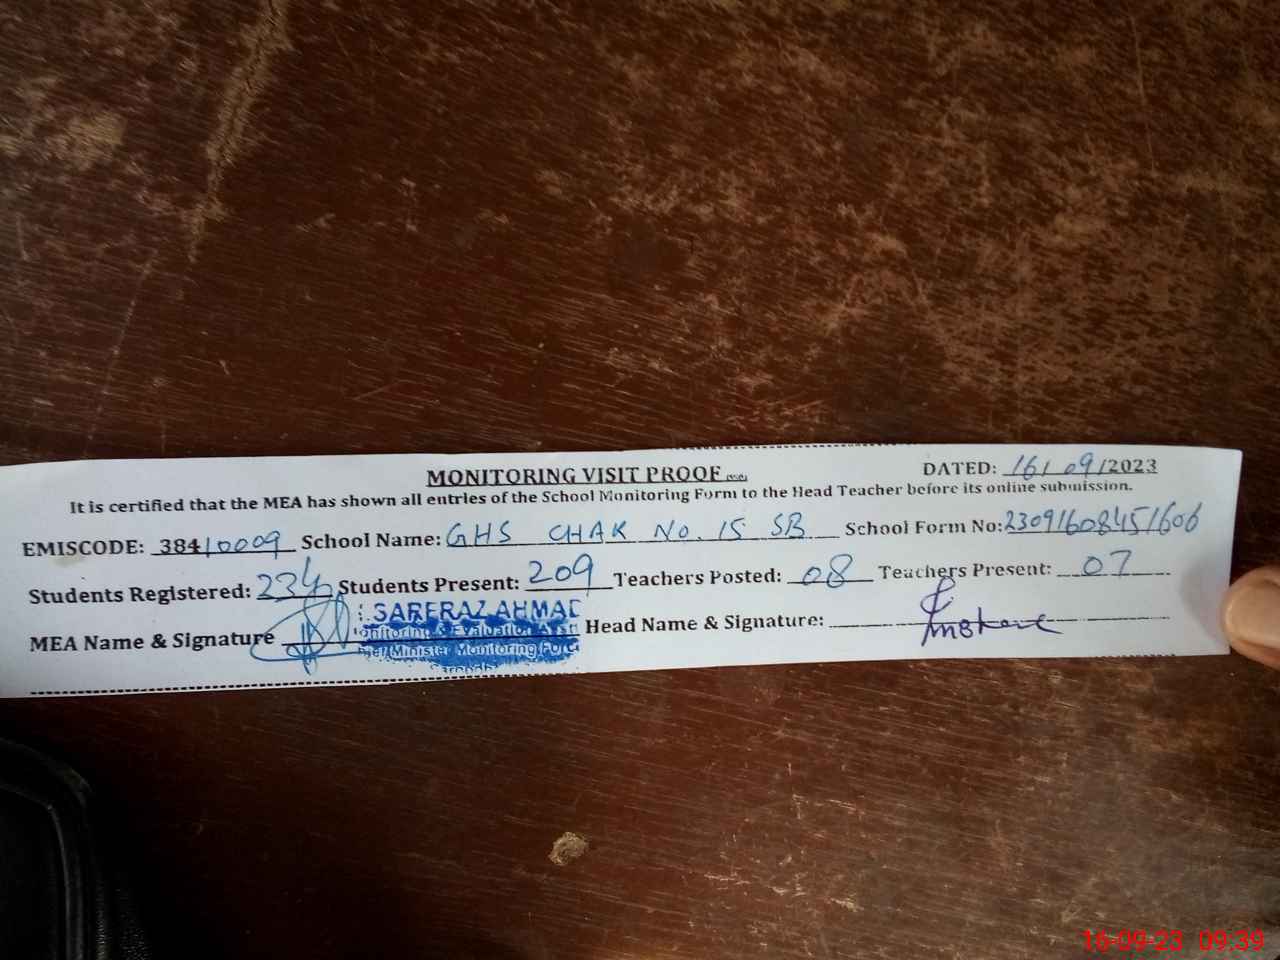 MONITORING VISIT PROOF
DATED: 16/09/2023
It is certified that the MEA has shown all entries of the School Monitoring Form to the Head Teacher before its online submission.
EMISCODE: 38410009 School Name: GHS CHAK No. 15 SB School Form No: 23091608451606
Students Registered: 234 Students Present: 209 Teachers Posted: 08 Teachers Present: 07
MEA Name & Signature Head Name & Signature:
SARFRAZ AHMAD
Monitoring & Evaluation
Chief Minister Monitoring Force
16-09-23 09:39